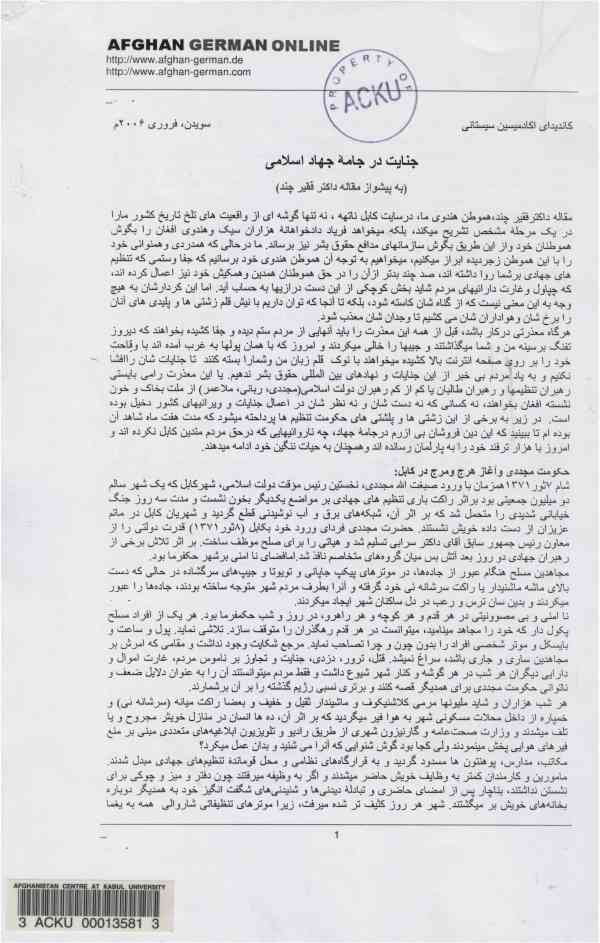 AFGHAN GERMAN ONLINE
http://www.afghan-german.de
http://www.afghan-german.com
PROPERTY OF
ACKU
کاندیدای اکادمیسین سیستانی
سویدن، فروری ۲۰۰۶م
جنایت در جامهٔ جهاد اسلامی
(به پیشواز مقاله داکتر فقیر چند)
مقاله داکترفقیر چند،هموطن هندوی ما، درسایت کابل ناتهه ، نه تنها گوشه ای از واقعیت های تلخ تاریخ کشور مارا
در یک مرحلهٔ مشخص تشریح میکند، بلکه میخواهد فریاد دادخواهانهٔ هزاران سیک وهندوی افغان را بگوش
هموطنان خود واز این طریق بگوش سازمانهای مدافع حقوق بشر نیز برساند. ما درحالی که همدردی وهمنوائی خود
را با این هموطن زجردیده ابراز میکنیم، میخواهیم به توجه آن هموطن هندوی خود برسانیم که جفا وستمی که تنظیم
های جهادی برشما روا داشته اند، صد چند بدتر ازآن را در حق هموطنان همدین وهمکیش خود نیز اعمال کرده اند،
که چپاول وغارت دارائیهای مردم شاید بخش کوچکی از این دست درازیها به حساب آید. اما این کردارشان به هیچ
وجه به این معنی نیست که از گناه شان کاسته شود، بلکه تا آنجا که توان داریم با نیش قلم زشتی ها و پلیدی های آنان
را برخ شان وهواداران شان می کشیم تا وجدان شان معذب شود.
هرگاه معذرتی درکار باشد، قبل از همه این معذرت را باید آنهایی از مردم ستم دیده و جفا کشیده بخواهند که دیروز
تفنگ برسینه من و شما میگذاشتند و جیبها را خالی میکردند و امروز که با همان پولها به غرب آمده اند با وقاحت
خود را بر روی صفحه انترنت بالا کشیده میخواهند با نوک قلم زبان من وشمارا بسته کنند تا جنایات شان راافشا
نکنیم و به یاد مردم بی خبر از این جنایات و نهادهای بین المللی حقوق بشر ندهیم. یا این معذرت رامی بایستی
رهبران تنظیمها و رهبران طالبان یا کم از کم رهبران دولت اسلامی(مجددی، ربانی، ملاعمر) از ملت بخاک و خون
نشسته افغان بخواهند، نه کسانی که نه دست شان و نه نظر شان در اعمال جنایات و ویرانیهای کشور دخیل بوده
است. در زیر به برخی از این زشتی ها و پلشتی های حکومت تنظیم ها پرداخته میشود که مدت هفت ماه شاهد آن
بوده ام تا ببینید که این دین فروشان بی ازرم درجامهٔ جهاد، چه نارواییهایی که درحق مردم متدین کابل نکرده اند و
امروز با هزار ترفند خود را به پارلمان رسانده اند وهمچنان به حیات ننگین خود ادامه میدهند.
حکومت مجددی وآغاز هرج ومرج در کابل:
شام ۷ثور۱۳۷۱همزمان با ورود صبغت الله مجددی، نخستین رئیس مؤقت دولت اسلامی، شهرکابل که یک شهر سالم
دو میلیون جمعیتی بود براثر راکت باری تنظیم های جهادی بر مواضع یکدیگر بخون نشست و مدت سه روز جنگ
خیابانی شدیدی را متحمل شد که بر اثر آن، شبکه‌های برق و آب نوشیدنی قطع گردید و شهریان کابل در ماتم
عزیزان از دست داده خویش نشستند. حضرت مجددی فردای ورود خود بکابل (۸ثور۱۳۷۱) قدرت دولتی را از
معاون رئیس جمهور سابق آقای داکتر سرابی تسلیم شد و هیاتی را برای صلح موظف ساخت. بر اثر تلاش برخی از
رهبران جهادی دو روز بعد آتش بس میان گروه‌های متخاصم نافذ شد.امافضای نا امنی برشهر حکفرما بود.
مجاهدین مسلح هنگام عبور از جاده‌ها، در موترهای پیکپ جاپانی و تویوتا و جیپ‌های سرگشاده در حالی که دست
بالای ماشه ماشیندار یا راکت سرشانه ئی خود گرفته و آنرا بطرف مردم شهر متوجه ساخته بودند، جاده‌ها را عبور
میکردند و بدین سان ترس و رعب در دل ساکنان شهر ایجاد میکردند.
نا امنی و بی مصوونیتی در هر قدم و هر کوچه و هر راهرو، در روز و شب حکمفرما بود. هر یک از افراد مسلح
پکول دار که خود را مجاهد مینامید، میتوانست در هر قدم رهگذران را متوقف سازد. تلاشی نماید. پول و ساعت و
بایسکل و موتر شخصی افراد را بدون چون و چرا تصاحب نماید. مرجع شکایت وجود نداشت و مقامی که امرش بر
مجاهدین ساری و جاری باشد، سراغ نمیشد. قتل، ترور، دزدی، جنایت و تجاوز بر ناموس مردم، غارت اموال و
دارایی دیگران هر شب در هر گوشه و کنار شهر شیوع داشت و فقط مردم میتوانستند آن را به عنوان دلایل ضعف و
ناتوانی حکومت مجددی برای همدیگر قصه کنند و برتری نسبی رژیم گذشته را بر آن برشمارند.
هر شب هزاران و شاید ملیونها مرمی کلاشنیکوف و ماشیندار ثقیل و خفیف و بعضا راکت میانه (سرشانه ئی) و
خمپاره از داخل محلات مسکونی شهر به هوا فیر میگردید که بر اثر آن، ده ها انسان در منازل خویش مجروح و یا
تلف میشدند و وزارت صحت‌عامه و گارنیزون شهری از طریق رادیو و تلویزیون ابلاغیه‌های متعددی مبنی بر منع
فیرهای هوایی پخش مینمودند ولی کجا بود گوش شنوایی که آنرا می شنید و بدان عمل میکرد؟
مکاتب، مدارس، پوهنتون ها مسدود گردید و به قرارگاه‌های نظامی و محل قوماندهٔ تنظیم‌های جهادی مبدل شدند.
مامورین و کارمندان کمتر به وظایف خویش حاضر میشدند و اگر به وظیفه میرفتند چون دفتر و میز و چوکی برای
نشستن نداشتند، بناچار پس از امضای حاضری و تبادلهٔ دیدنی‌ها و شنیدنی‌های شگفت انگیز خود به همدیگر دوباره
بخانه‌های خویش بر میگشتند. شهر هر روز کثیف تر شده میرفت، زیرا موترهای تنظیفاتی شاروالی همه به یغما
1
AFGHANISTAN CENTRE AT KABUL UNIVERSITY
3 ACKU 00013581 3